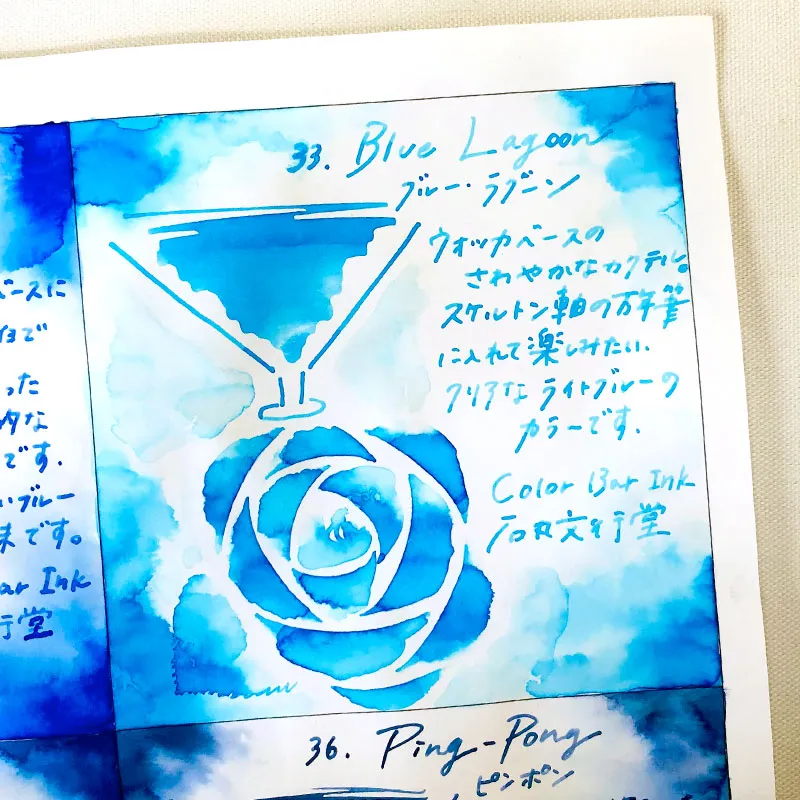 33. Blue Lagoon
ブルー・ラグーン
ウォッカベースの
さわやかなカクテル。
スケルトン軸の万年筆
に入れて楽しみたい、
クリアな ライトブルーの
カラーです.
Color Bar Ink
石丸文行堂
ベースに
った
な
です.
いブルー
です。
Bar Ink
行堂
36. Ping-Pong
ピンポン